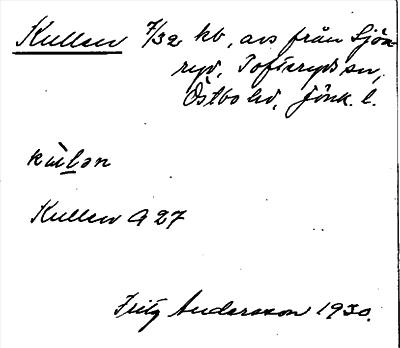 Kullen 7/32 kb, avs från Sjöa-
ryd, Tofteryds sn,
Östbo hd, Jönk. l.
kùlən
Kullen A 27
Fritz Andersson 1930.